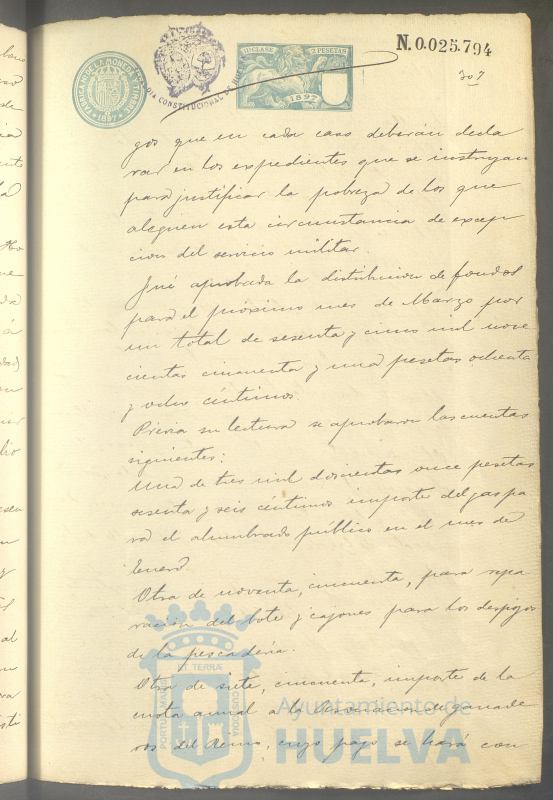 FABRICA DE LA MONEDA Y TIMBRE
1897
ALCALDIA CONSTITUCIONAL DE HUELVA
11ª CLASE 2 PESETAS
1897
N.0.025.794
307
gos que en cada caso deberán decla
rar en los expedientes que se instruyan
para justificar la pobreza de los que
aleguen esta circunstancia de excep
cion del servicio militar.
Fué aprobada la distribucion de fondos
para el próximo mes de Marzo por
un total de sesenta y cinco mil nove
cientas cincuenta y una pesetas ochenta
y ocho céntimos.
Previa su lectura se aprobaron las cuentas
siguientes:
Una de tres mil doscientas once pesetas
sesenta y seis céntimos importe del gas pa
ra el alumbrado público en el mes de
Enero.
Otra de noventa, cincuenta, para repa
racion del bote y cajones para los despojos
de la pescadería.
Otra de siete, cincuenta, importe de la
cuota anual a la Asociacion de ganade
ros del Reino, cuyo pago se hará con
PORTUS MARIS ET TERRAE CUSTODIA
Ayuntamiento de
HUELVA